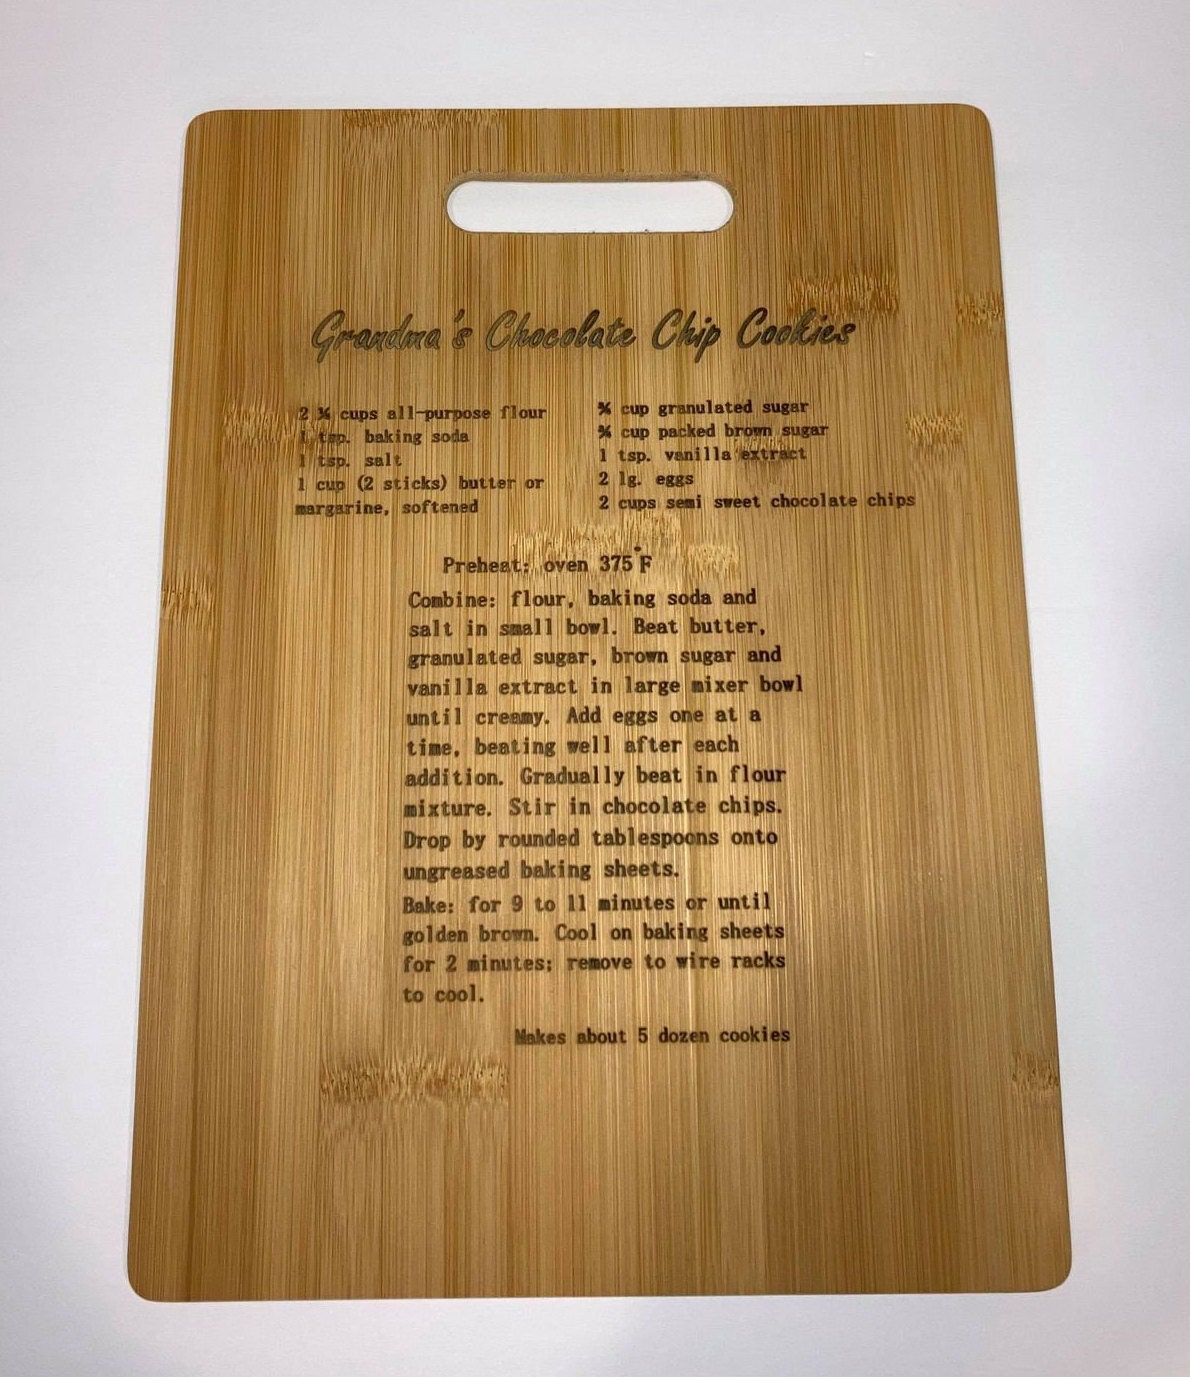 Grandma's Chocolate Chip Cookies
2 ¼ cups all-purpose flour
1 tsp. baking soda
1 tsp. salt
1 cup (2 sticks) butter or
margarine, softened
¾ cup granulated sugar
¾ cup packed brown sugar
1 tsp. vanilla extract
2 lg. eggs
2 cups semi sweet chocolate chips
Preheat: oven 375°F
Combine: flour, baking soda and
salt in small bowl. Beat butter,
granulated sugar, brown sugar and
vanilla extract in large mixer bowl
until creamy. Add eggs one at a
time, beating well after each
addition. Gradually beat in flour
mixture. Stir in chocolate chips.
Drop by rounded tablespoons onto
ungreased baking sheets.
Bake: for 9 to 11 minutes or until
golden brown. Cool on baking sheets
for 2 minutes; remove to wire racks
to cool.
Makes about 5 dozen cookies